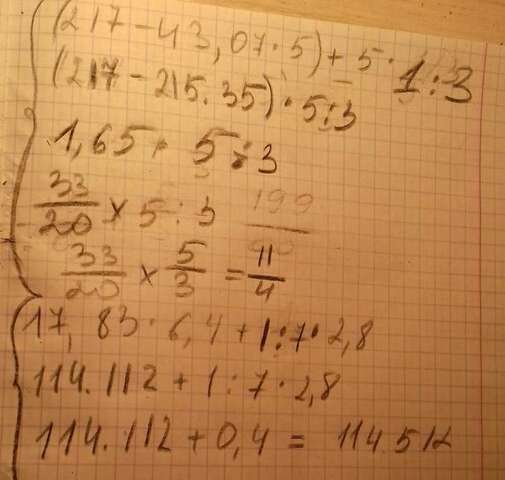 (217 - 43,07 · 5) + 5 · 1 : 3
(217 - 215.35) · 5 : 3
1,65 · 5 : 3
33/20 × 5 : 3
33/20 × 5/3 = 11/4
17,83 · 6,4 + 1 : 7 · 2,8
114.112 + 1 : 7 · 2,8
114.112 + 0,4 = 114.512